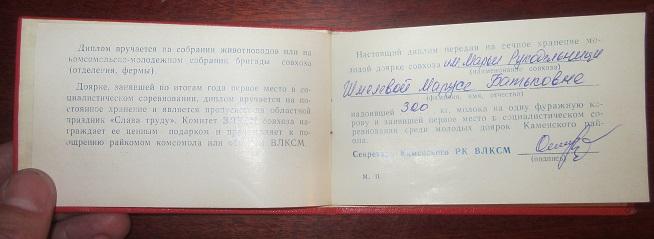 Диплом вручается на собрании животноводов или на
комсомольско-молодежном собрании бригады совхоза
(отделения, фермы).
Доярке, занявшей по итогам года первое место в со-
циалистическом соревновании, диплом вручается на по-
стоянное хранение и является пропуском на областной
праздник «Слава труду». Комитет ВЛКСМ совхоза на-
граждает ее ценным подарком и представляет к по-
ощрению райкомом комсомола или обкомом ВЛКСМ.
Настоящий диплом передан на вечное хранение мо-
лодой доярке совхоза им. Марьи Рукодельницы
(наименование совхоза)
Шмелевой Марусе Батьковне
(фамилия, имя, отчество)
надоившей 300 кг. молока на одну фуражную ко-
рову и занявшей первое место в социалистическом со-
ревновании среди молодых доярок Каменского рай-
она.
Секретарь Каменского РК ВЛКСМ
(подпись)
М. П.